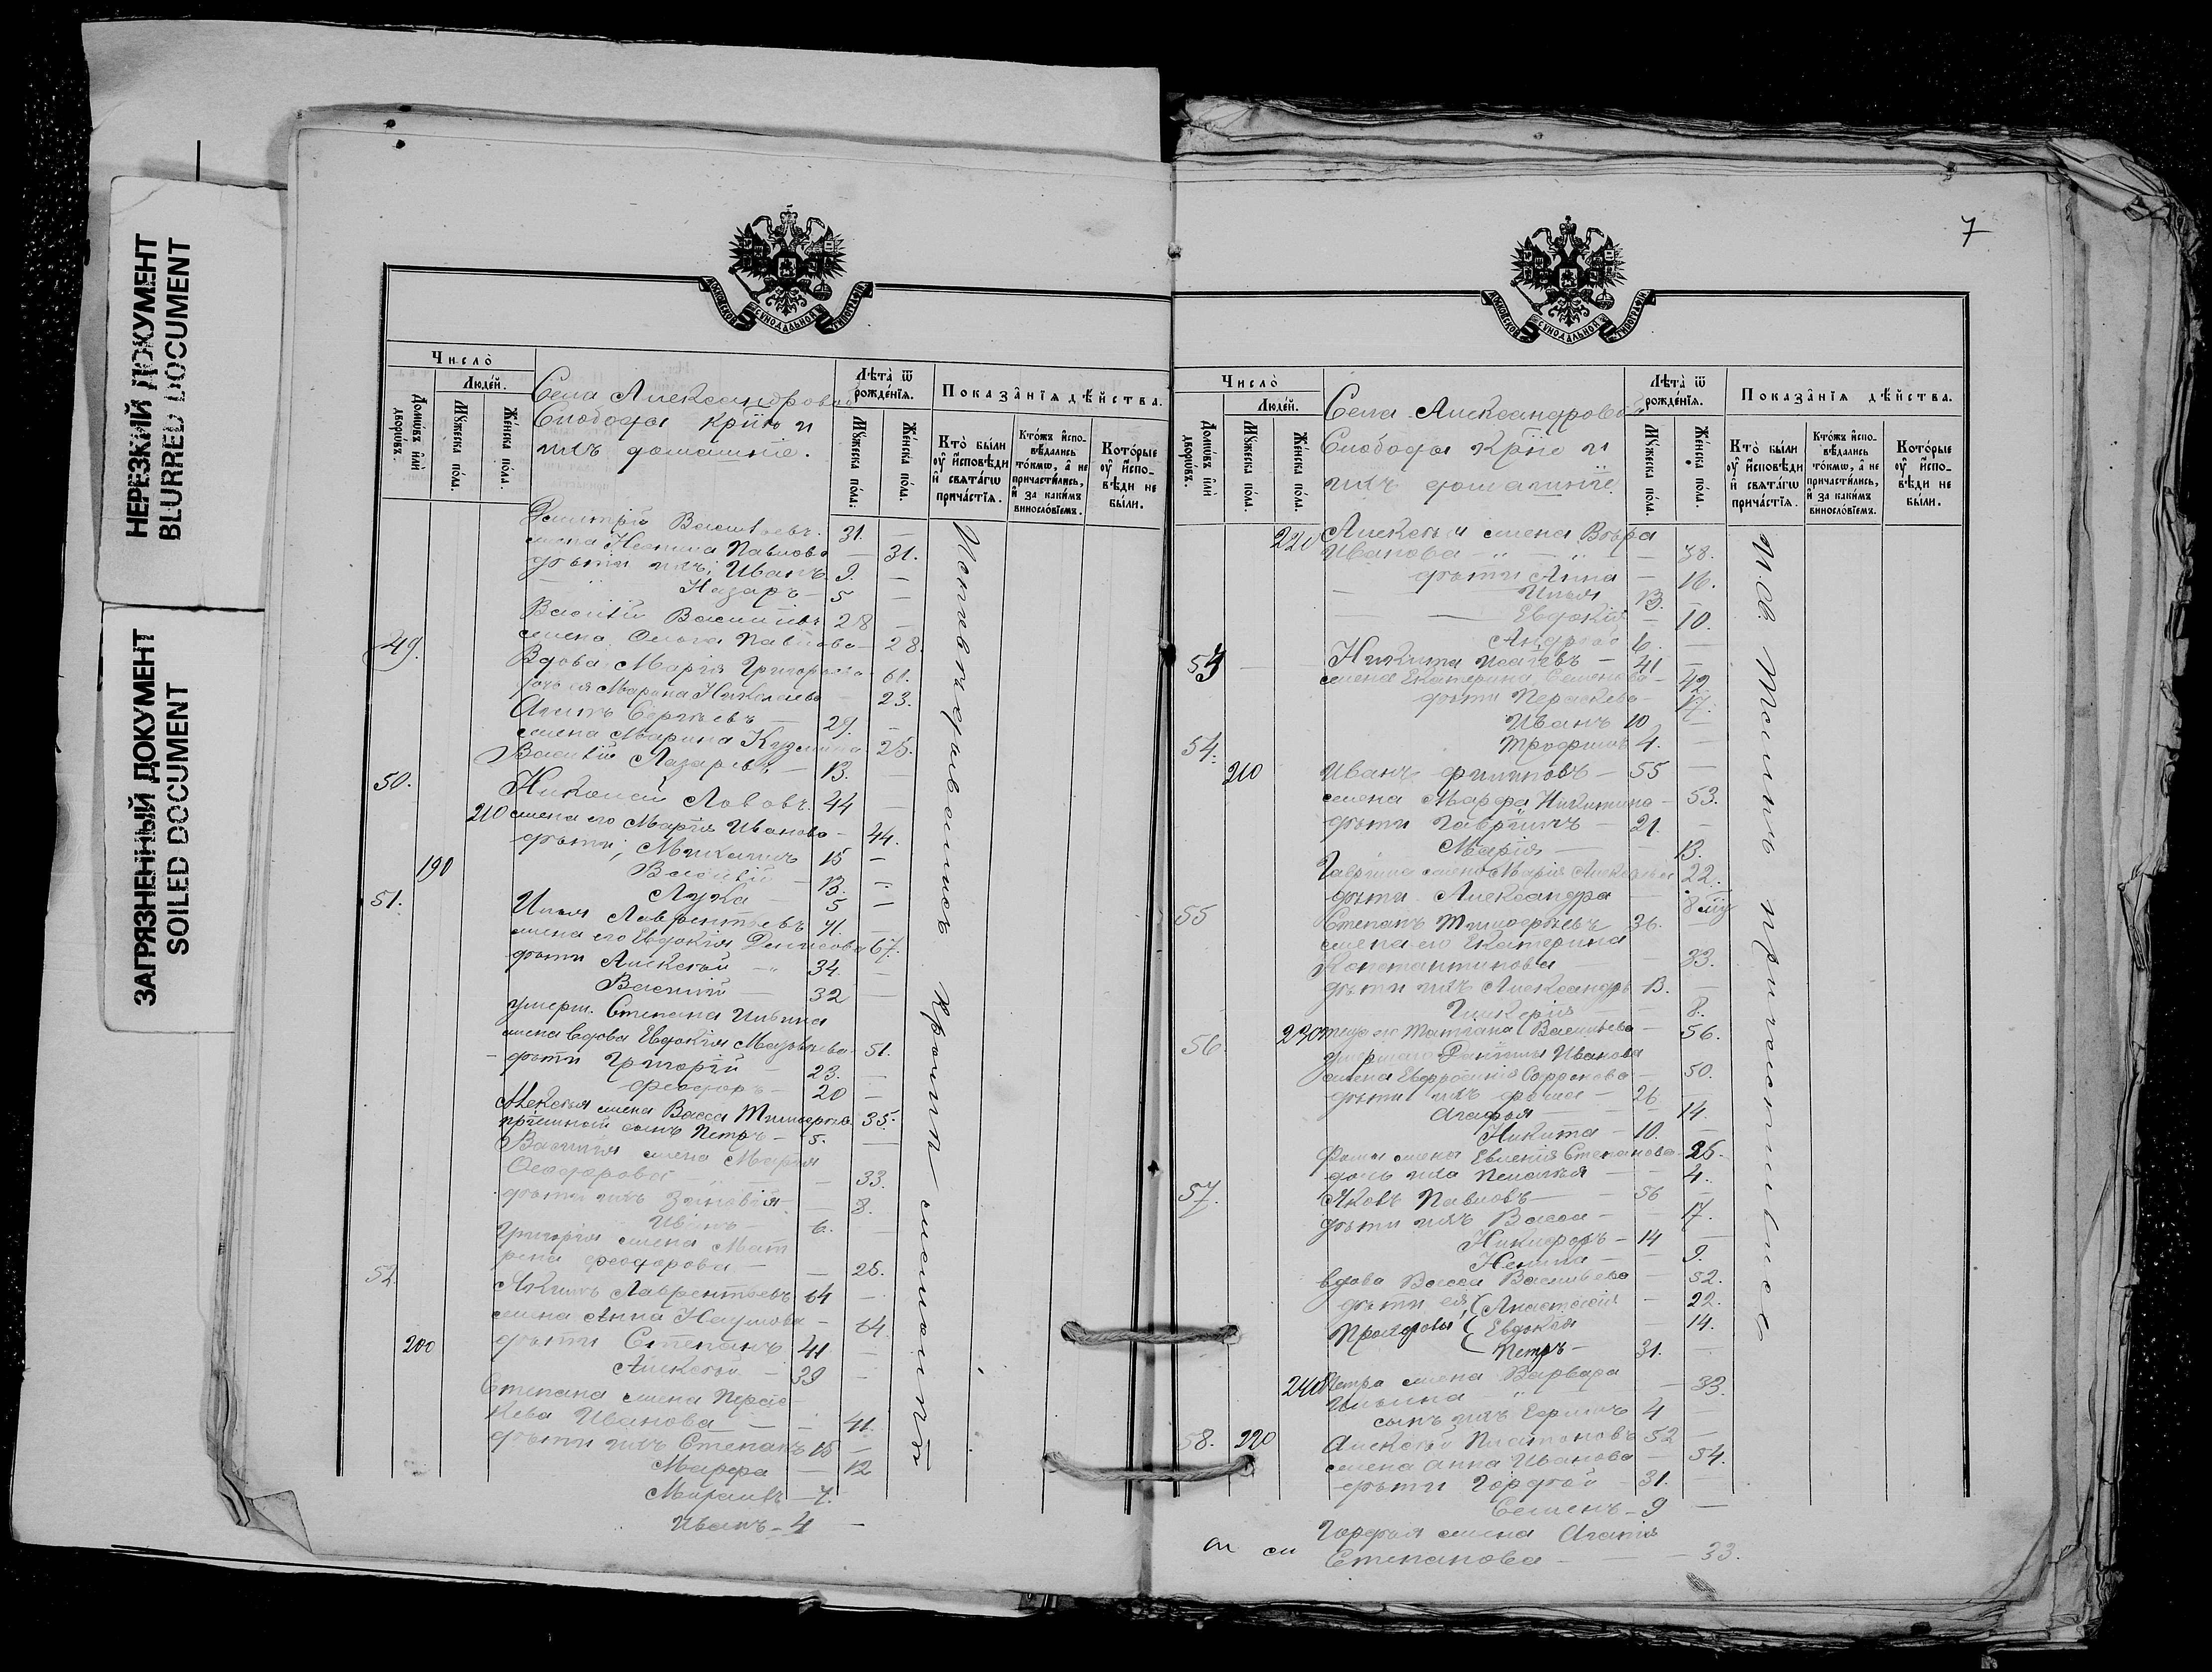 НЕРЕЗКИЙ ДОКУМЕНТ
BLURRED DOCUMENT
ЗАГРЯЗНЕННЫЙ ДОКУМЕНТ
SOILED DOCUMENT
МОСКОВСКОЙ СУНОДАЛЬНОЙ ТИПОГРАФІИ
Число̀
Людéй.
Домѡ́въ и҆лѝ дворѡ́въ.
Мꙋ́жеска по́ла.
Же́нска по́ла.
Села Александровой
Слободы крѣю и
ихъ домашніе.
Лѣ́та ѿ рожде́нїѧ.
Мꙋ́жеска по́ла.
Же́нска по́ла.
Показа̑нїѧ дѣ́йства.
Кто̀ бы́ли ᲂу҆ и҆сповѣди и҆ свѧта́гѡ прича́стїѧ.
Кто́жъ и҆спо-вѣ́дались то́кмѡ, а҆ не причасти́лись, и҆ за каки́мъ винословїемъ.
Кото́рые ᲂу҆ и҆спо-вѣди не бы́ли.
Дмитрій Васильевъ. 31. —
жена Неонила Павлова — 31.
дѣти ихъ: Иванъ 9. —
Назаръ — 5 —
Василій Васильевъ 28 —
жена Ольга Павлова — 28.
49. Вдова Марія Григорьева 61.
дочь ея Марина Николаева 23.
Сергѣевъ — 29. —
жена Марина Кузмина 25.
Василій Лазаревъ — 13. —
50. Николай Львовъ. 44 —
210 жена его Марія Иванова — 44.
дѣти: Михаилъ 15 —
190 Василій — 13. —
Лука 5 —
51. Илья Лаврентьевъ 71. —
жена его Евдокія Денисова 67.
дѣти Алексѣй — 34. —
Василій — 32
умерш. Степана Ильина
жена вдова Евдокія Матвѣева 51.
— дѣти Григорій — 23. —
Феодоръ — 20 —
Алексѣя жена Васса Тимофеева 35.
пріемный сынъ Петръ — 5. —
Василія жена Марія
Феодорова — 33.
дѣти ихъ Зиновія — 8.
Иванъ — 6. —
Григорія жена Мат
рена Феодорова — 25.
52. Акимъ Лаврентьевъ 64 —
жена Анна Наумова — 64.
200 дѣти Степанъ 41 —
Алексѣй — 39 —
Степана жена Парас-
кева Иванова — 41.
дѣти ихъ Степанъ 15 —
Марфа — 12
— 7.
Иванъ — 4 —
Исповѣдывались кромѣ
7
МОСКОВСКОЙ СУНОДАЛЬНОЙ ТИПОГРАФІИ
Число̀
Людéй.
Домѡ́въ и҆лѝ дворѡ́въ.
Мꙋ́жеска по́ла.
Же́нска по́ла.
Села Александровой
Слободы крѣю и
ихъ домашніе.
Лѣ́та ѿ рожде́нїѧ.
Мꙋ́жеска по́ла.
Же́нска по́ла.
Показа̑нїѧ дѣ́йства.
Кто̀ бы́ли ᲂу҆ и҆сповѣди и҆ свѧта́гѡ прича́стїѧ.
Кто́жъ и҆спо-вѣ́дались то́кмѡ, а҆ не причасти́лись, и҆ за каки́мъ винословїемъ.
Кото́рые ᲂу҆ и҆спо-вѣди не бы́ли.
220 Алексѣя жена Вѣра
Иванова — 38.
дѣти Анна — 16.
Илья 13. —
Евдокія — 10.
Андрей 6. —
53 Никита Исаевъ — 41 —
жена Екатерина Семенова — 42.
дѣти Параскева — 17.
Иванъ 10 —
54. Трофимъ 4. —
210 Иванъ Филиповъ — 55 —
жена Марфа Никитина — 53.
дѣти Гавріилъ — 21. —
Марія — 13.
Гавріила жена Марія Алексѣева 22.
дѣти Александра — 8 мц
55 Степанъ Тимофѣевъ 36. —
жена его Екатерина
Константинова — 33.
дѣти ихъ Александръ 13. —
Гликерія — 8.
230 Татіана Васильева — 56.
56. умершаго Даніила Иванова
жена Евфросинія Софронова — 50.
дѣти ихъ Фома — 26. —
Агафья — 14.
Никита — 10. —
Фомы жена Евгенія Степанова — 25.
дочь ихъ Пелагія — 4.
57. Яковъ Павловъ — 56 —
дѣти ихъ Васса — 17.
Никифоръ — 14 —
Ненила — 9.
вдова Васса Васильева — 52.
дѣти ея Анастасія — 22.
Евдокія — 14.
Петръ — 31. —
240 Петра жена Варвара
Ильина — 33.
сынъ ихъ Ефимъ 4 —
58. 220 Алексѣй Платоновъ 52 —
жена Анна Иванова — 54.
дѣти Гордѣй — 31. —
Семенъ — 9 —
Гордѣя жена Агапія
Степанова — 33.
и св. таинъ пріобщились